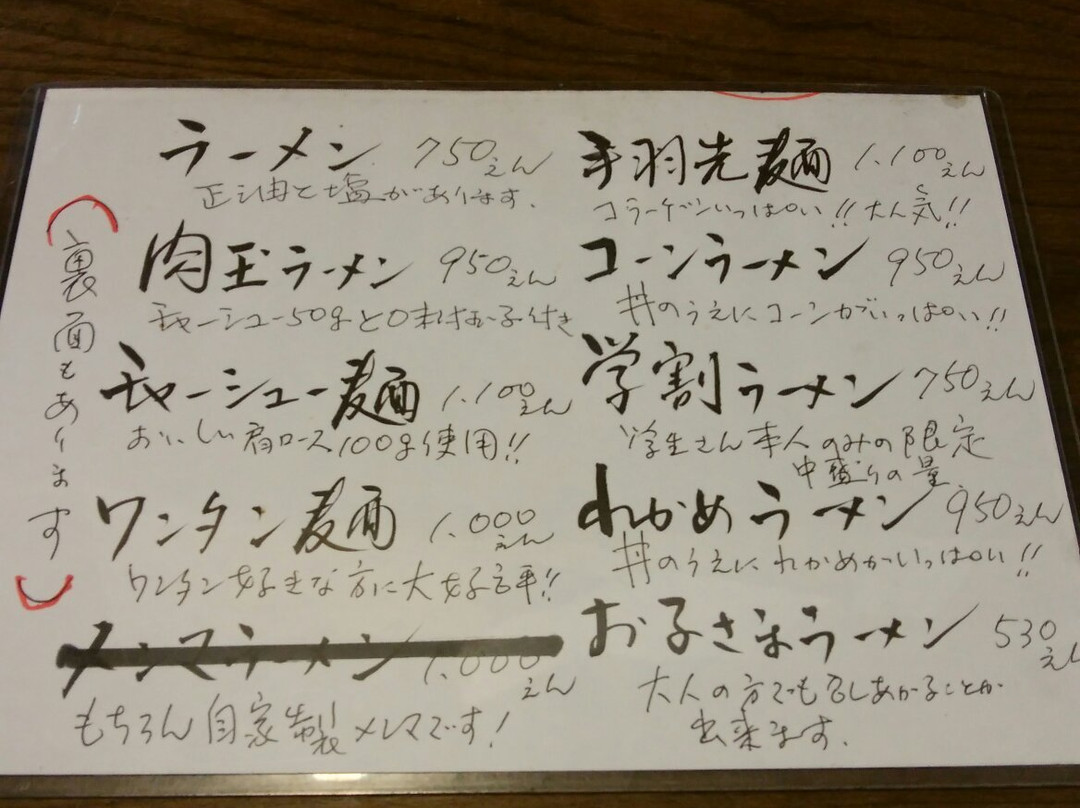 ラーメン 750えん
正油と塩があります.
肉玉ラーメン 950えん
チャーシュー50gと味付玉子付き
チャーシュー麺 1.100えん
おいしい肩ロース100g使用!!
ワンタン麺 1.000えん
ワンタン好きな方に大好評!!
メンマラーメン 1.000えん
もちろん自家製メンマです!
手羽先麺 1.100えん
コラーゲンいっぱい!!大人気!!
コーンラーメン 950えん
丼のうえにコーンがいっぱい!!
学割ラーメン 750えん
学生さん本人のみの限定
中盛りの量
わかめラーメン 950えん
丼のうえにわかめがいっぱい!!
お子さまラーメン 530えん
大人の方でも召しあがることが
出来ます.
(裏面もあります)